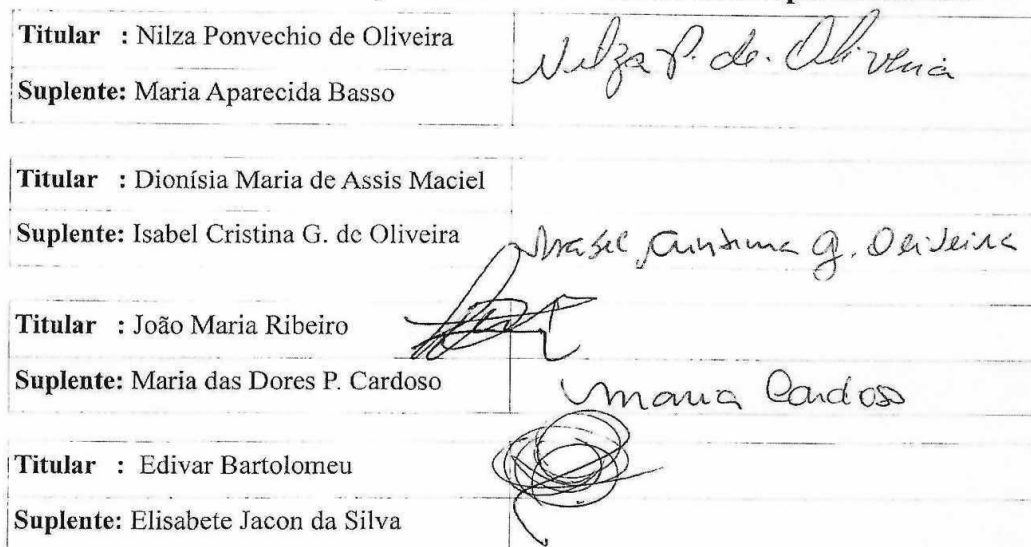 Titular : Nilza Ponvechio de Oliveira
Nilza P. de. Oliveira
Suplente: Maria Aparecida Basso
Titular : Dionísia Maria de Assis Maciel
Suplente: Isabel Cristina G. de Oliveira
Isabel Cristina G. Oliveira
Titular : João Maria Ribeiro
Suplente: Maria das Dores P. Cardoso
Maria Cardoso
Titular : Edivar Bartolomeu
Suplente: Elisabete Jacon da Silva